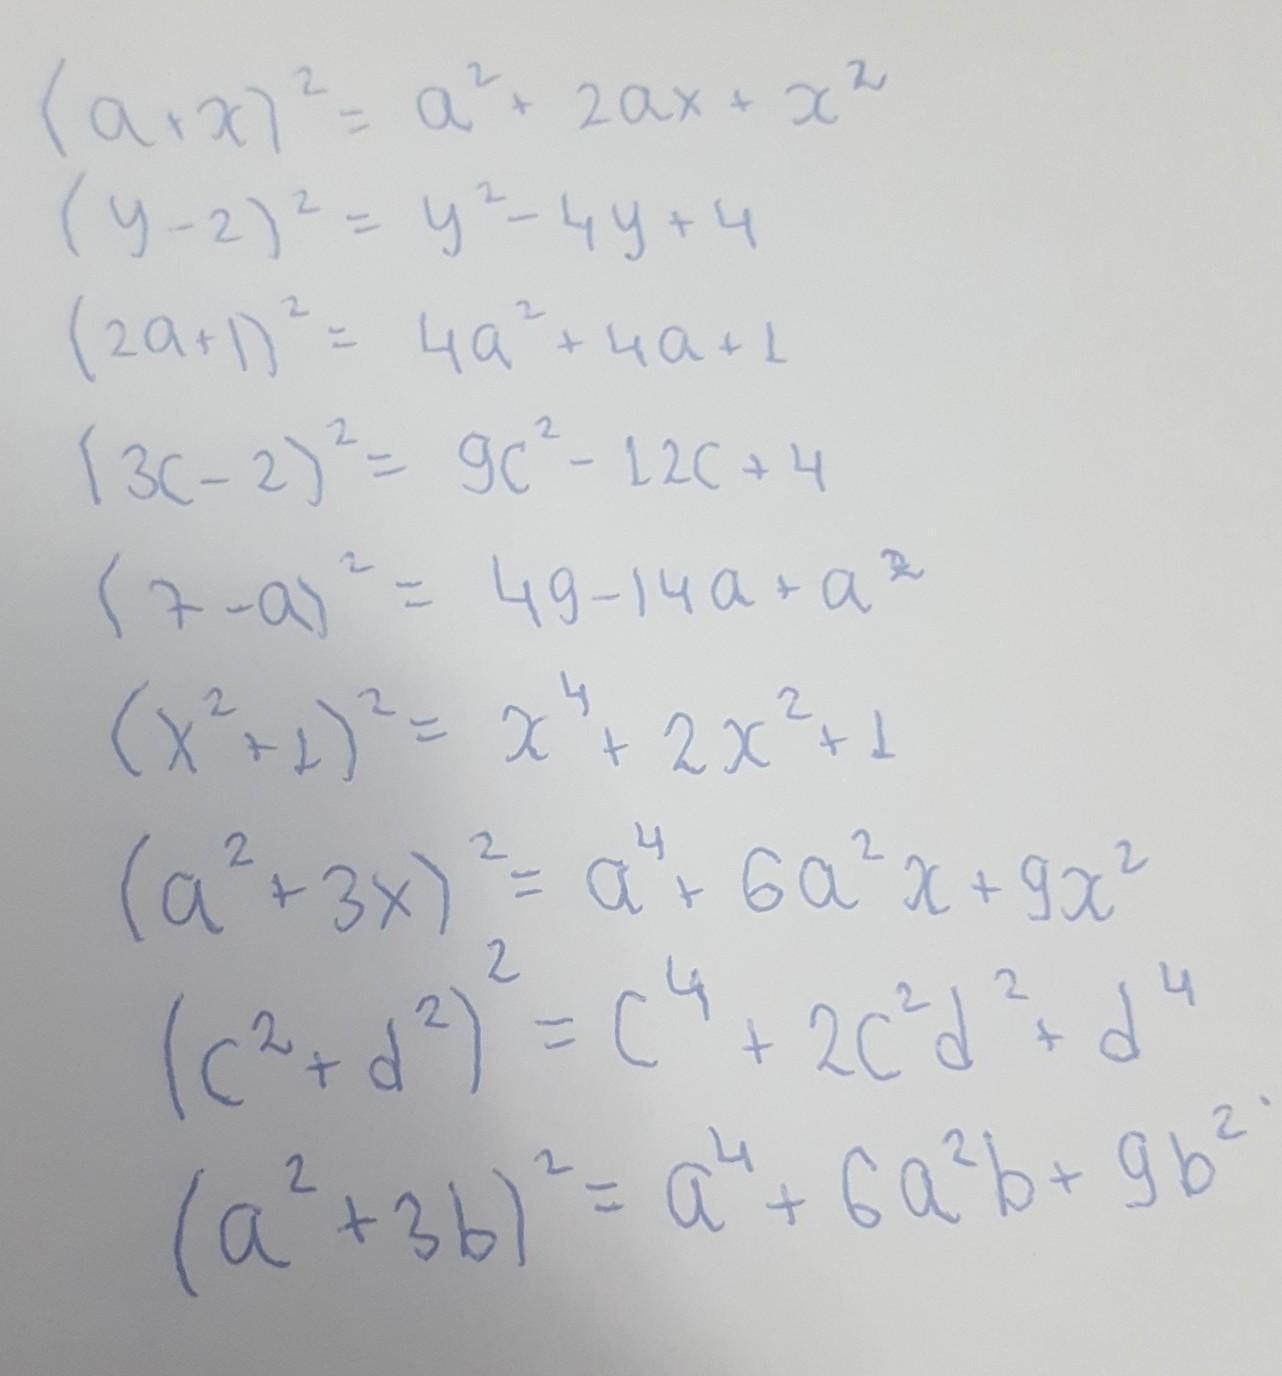 (a+x)² = a² + 2ax + x²
(y-2)² = y² - 4y + 4
(2a+1)² = 4a² + 4a + 1
(3c-2)² = 9c² - 12c + 4
(7-a)² = 49 - 14a + a²
(x²+1)² = x⁴ + 2x² + 1
(a²+3x)² = a⁴ + 6a²x + 9x²
(c²+d²)² = c⁴ + 2c²d² + d⁴
(a²+3b)² = a⁴ + 6a²b + 9b²